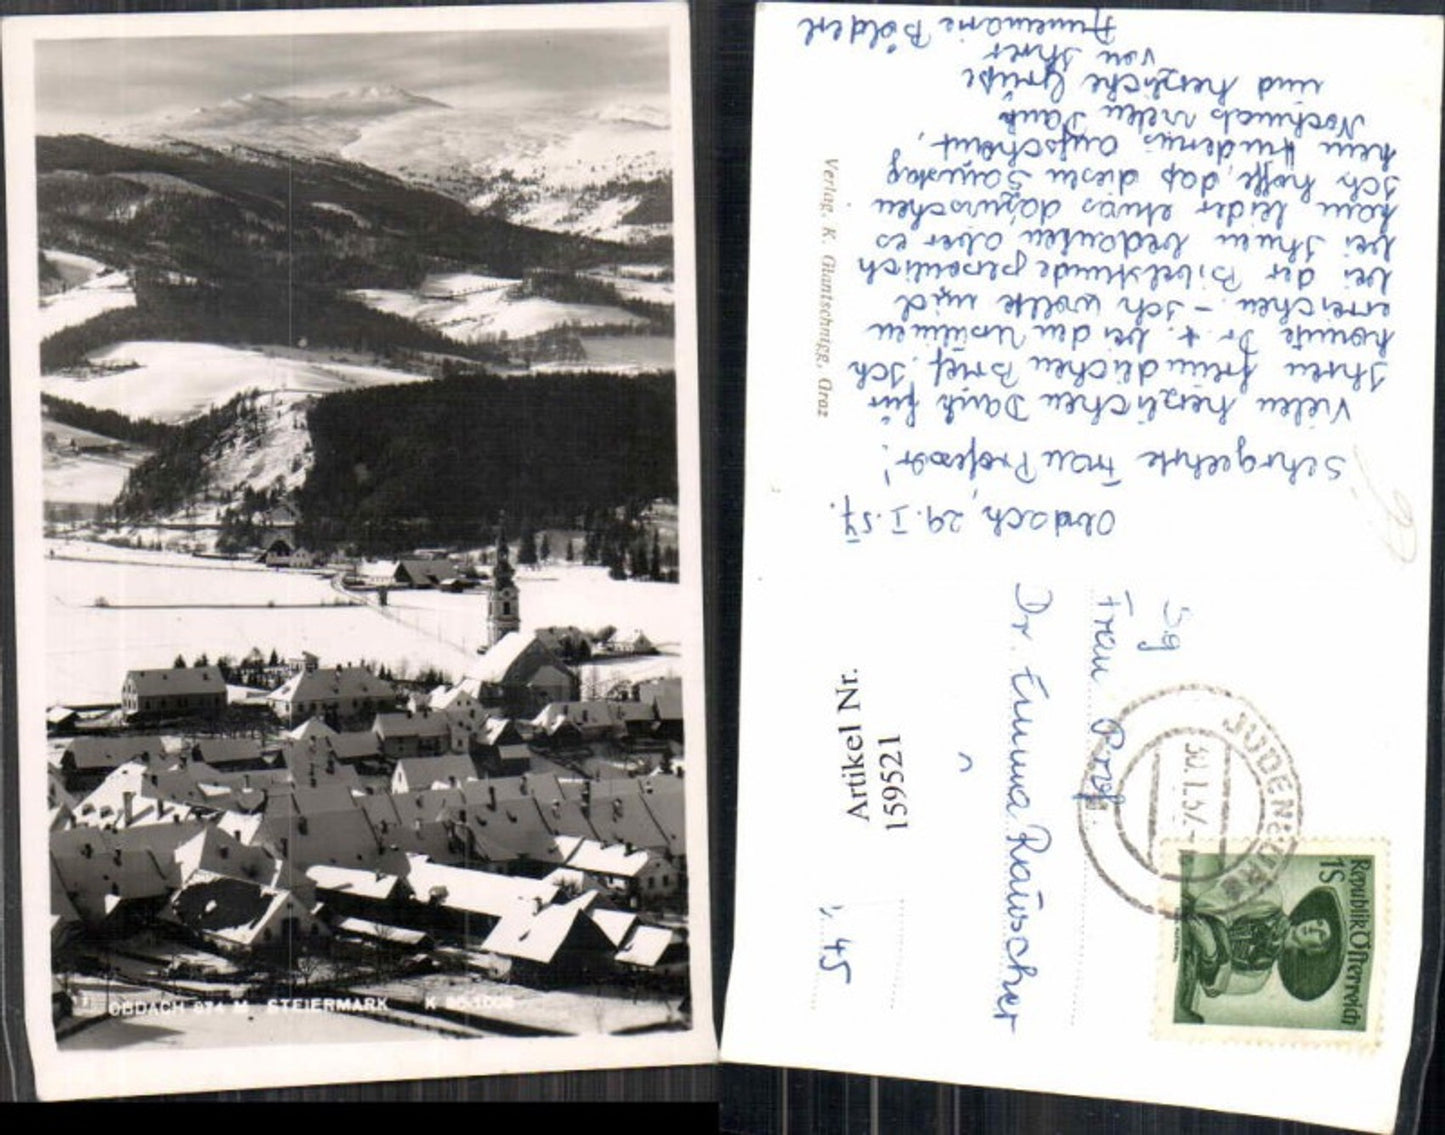 OBDACH 874 M. STEIERMARK K
Obdach, 29. I. 57.
Sehrgeehrte Frau Professor!
Vielen herzlichen Dank für
Ihren freundlichen Brief. Ich
konnte Dr. t. bei den
erreichen. - Ich wollte mich
bei der Bibelstunde persönlich
bei Ihnen bedanken aber es
kam leider etwas dazwischen
Ich hoffe, daß diesen Samstag
kein Hindernis aufscheint.
Nochmals vielen Dank
und herzliche Grüße
von Ihrer
Annemarie Bölderl
Verlag. K. Glantschnigg, Graz
Sg
Frau Prof.
Dr. Emma Rauscher
Artikel Nr.
159521
45
JUDENBURG
30. I. 57.
Republik Österreich
1S